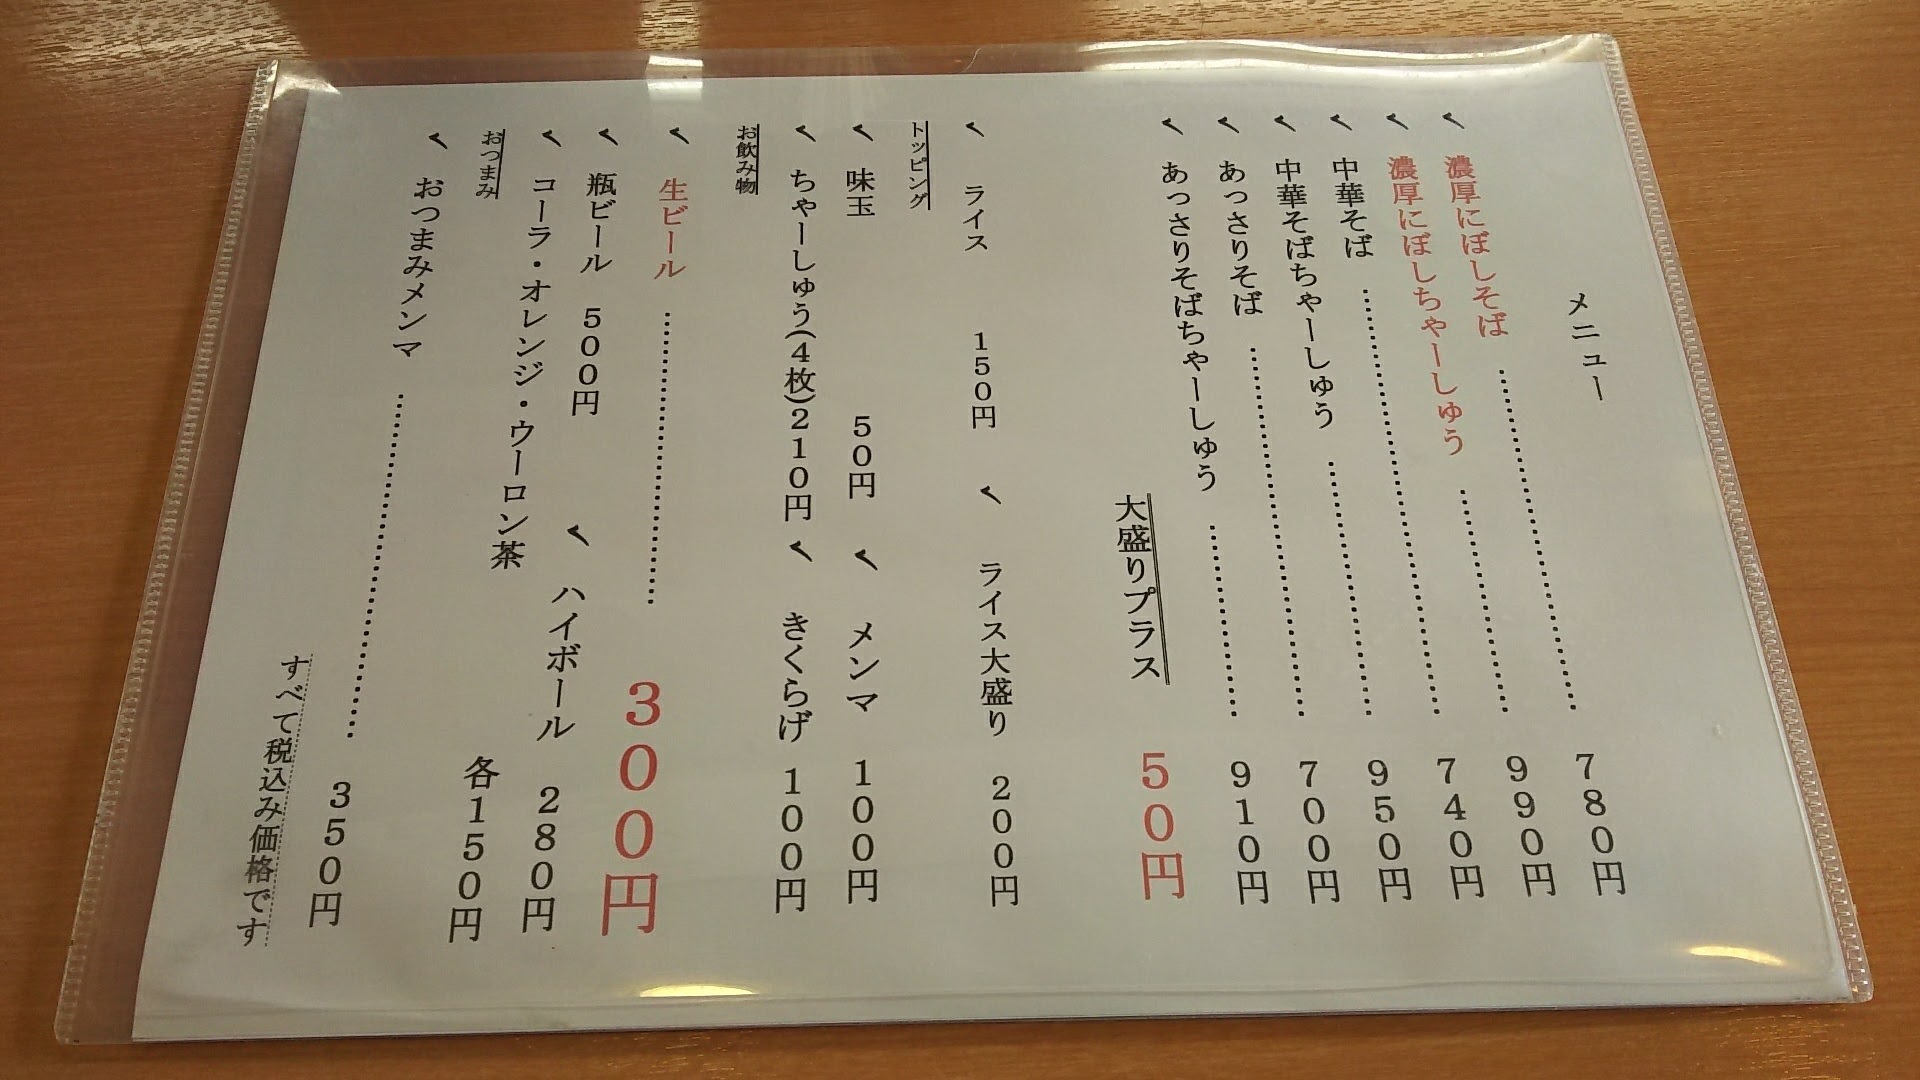 メニュー
く 濃厚にぼしそば ………………… 780円
く 濃厚にぼしちゃーしゅう ………… 990円
く 中華そば ………………… 740円
く 中華そばちゃーしゅう ………… 950円
く あっさりそば ………………… 700円
く あっさりそばちゃーしゅう ……… 910円
大盛りプラス 50円
く ライス 150円 く ライス大盛り 200円
トッピング
く 味玉 50円 く メンマ 100円
く ちゃーしゅう(4枚)210円 く きくらげ 100円
お飲み物
く 生ビール ………………… 300円
く 瓶ビール 500円 く ハイボール 280円
く コーラ・オレンジ・ウーロン茶 各150円
おつまみ
く おつまみメンマ ………………… 350円
すべて税込み価格です